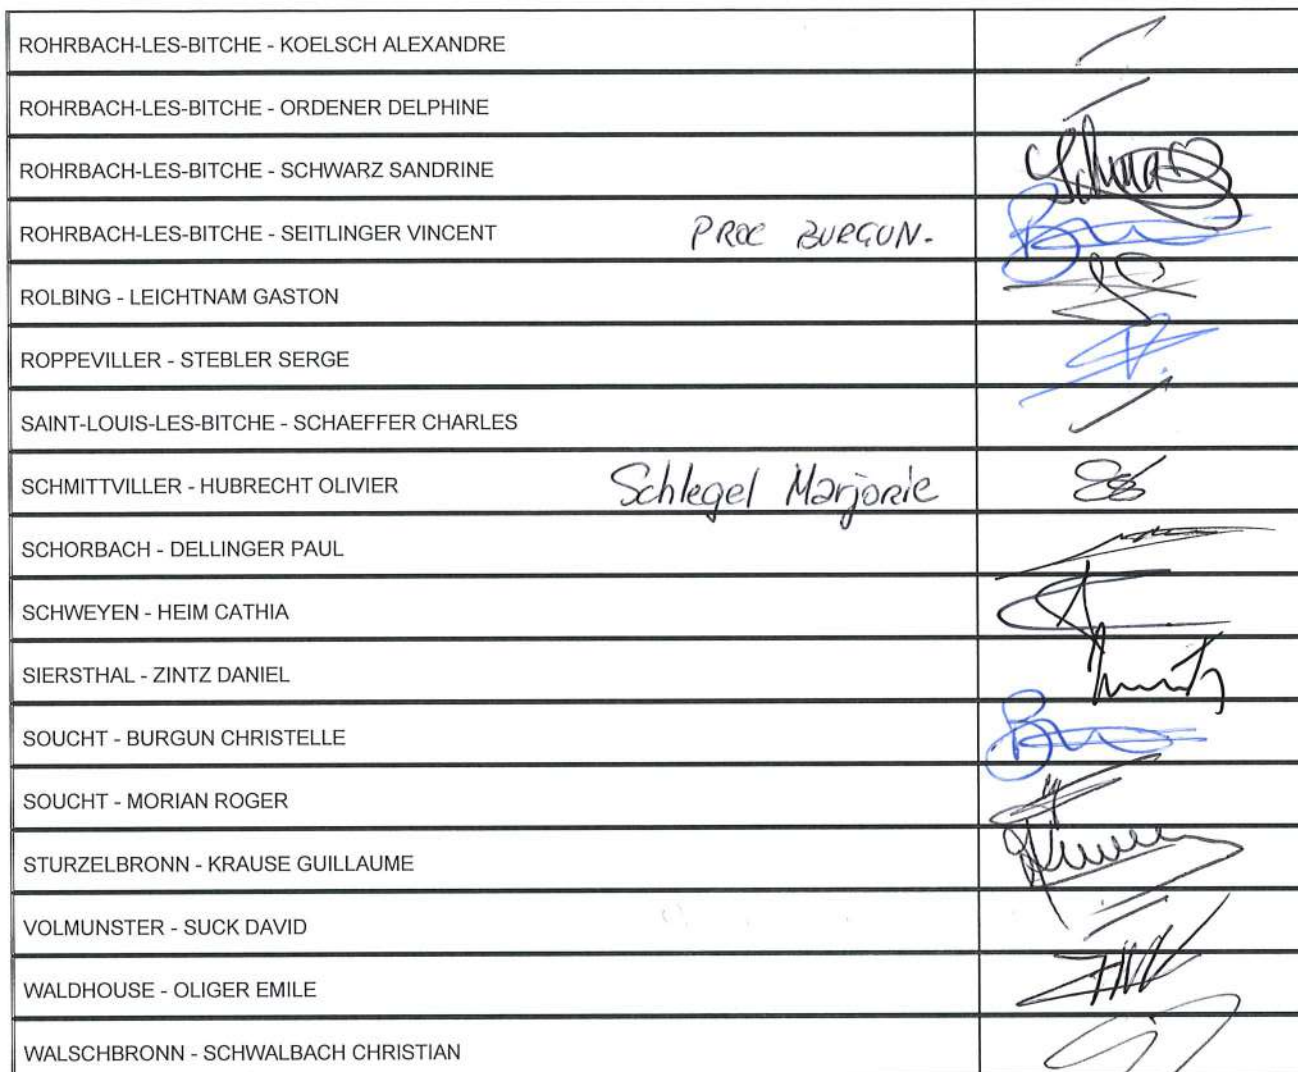 ROHRBACH-LES-BITCHE - KOELSCH ALEXANDRE
ROHRBACH-LES-BITCHE - ORDENER DELPHINE
ROHRBACH-LES-BITCHE - SCHWARZ SANDRINE
ROHRBACH-LES-BITCHE - SEITLINGER VINCENT PROC BURGUN.
ROLBING - LEICHTNAM GASTON
ROPPEVILLER - STEBLER SERGE
SAINT-LOUIS-LES-BITCHE - SCHAEFFER CHARLES
SCHMITTVILLER - HUBRECHT OLIVIER Schlegel Marjorie
SCHORBACH - DELLINGER PAUL
SCHWEYEN - HEIM CATHIA
SIERSTHAL - ZINTZ DANIEL
SOUCHT - BURGUN CHRISTELLE
SOUCHT - MORIAN ROGER
STURZELBRONN - KRAUSE GUILLAUME
VOLMUNSTER - SUCK DAVID
WALDHOUSE - OLIGER EMILE
WALSCHBRONN - SCHWALBACH CHRISTIAN